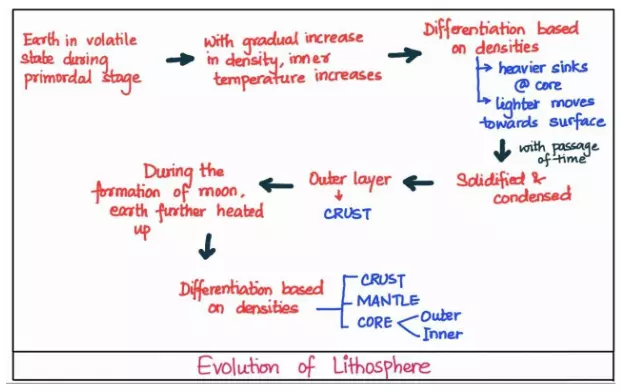 Earth in volatile
state during
primordal stage
With gradual increase
in density, inner
temperature increases
Differentiation based
on densities
heavier sinks
@ core
Lighter moves
towards surface
with passage
of time
Solidified &
condensed
Outer layer
CRUST
During the
formation of moon,
earth further heated
up
Differentiation based
on densities
CRUST
MANTLE
CORE
Outer
Inner
Evolution of Lithosphere